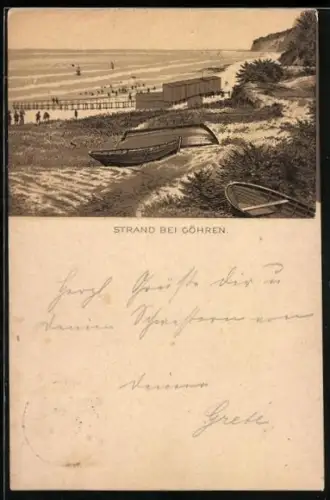 STRAND BEI GÖHREN.
Herzl Grüße dir u
deinen Schwestern von
deiner
Grete